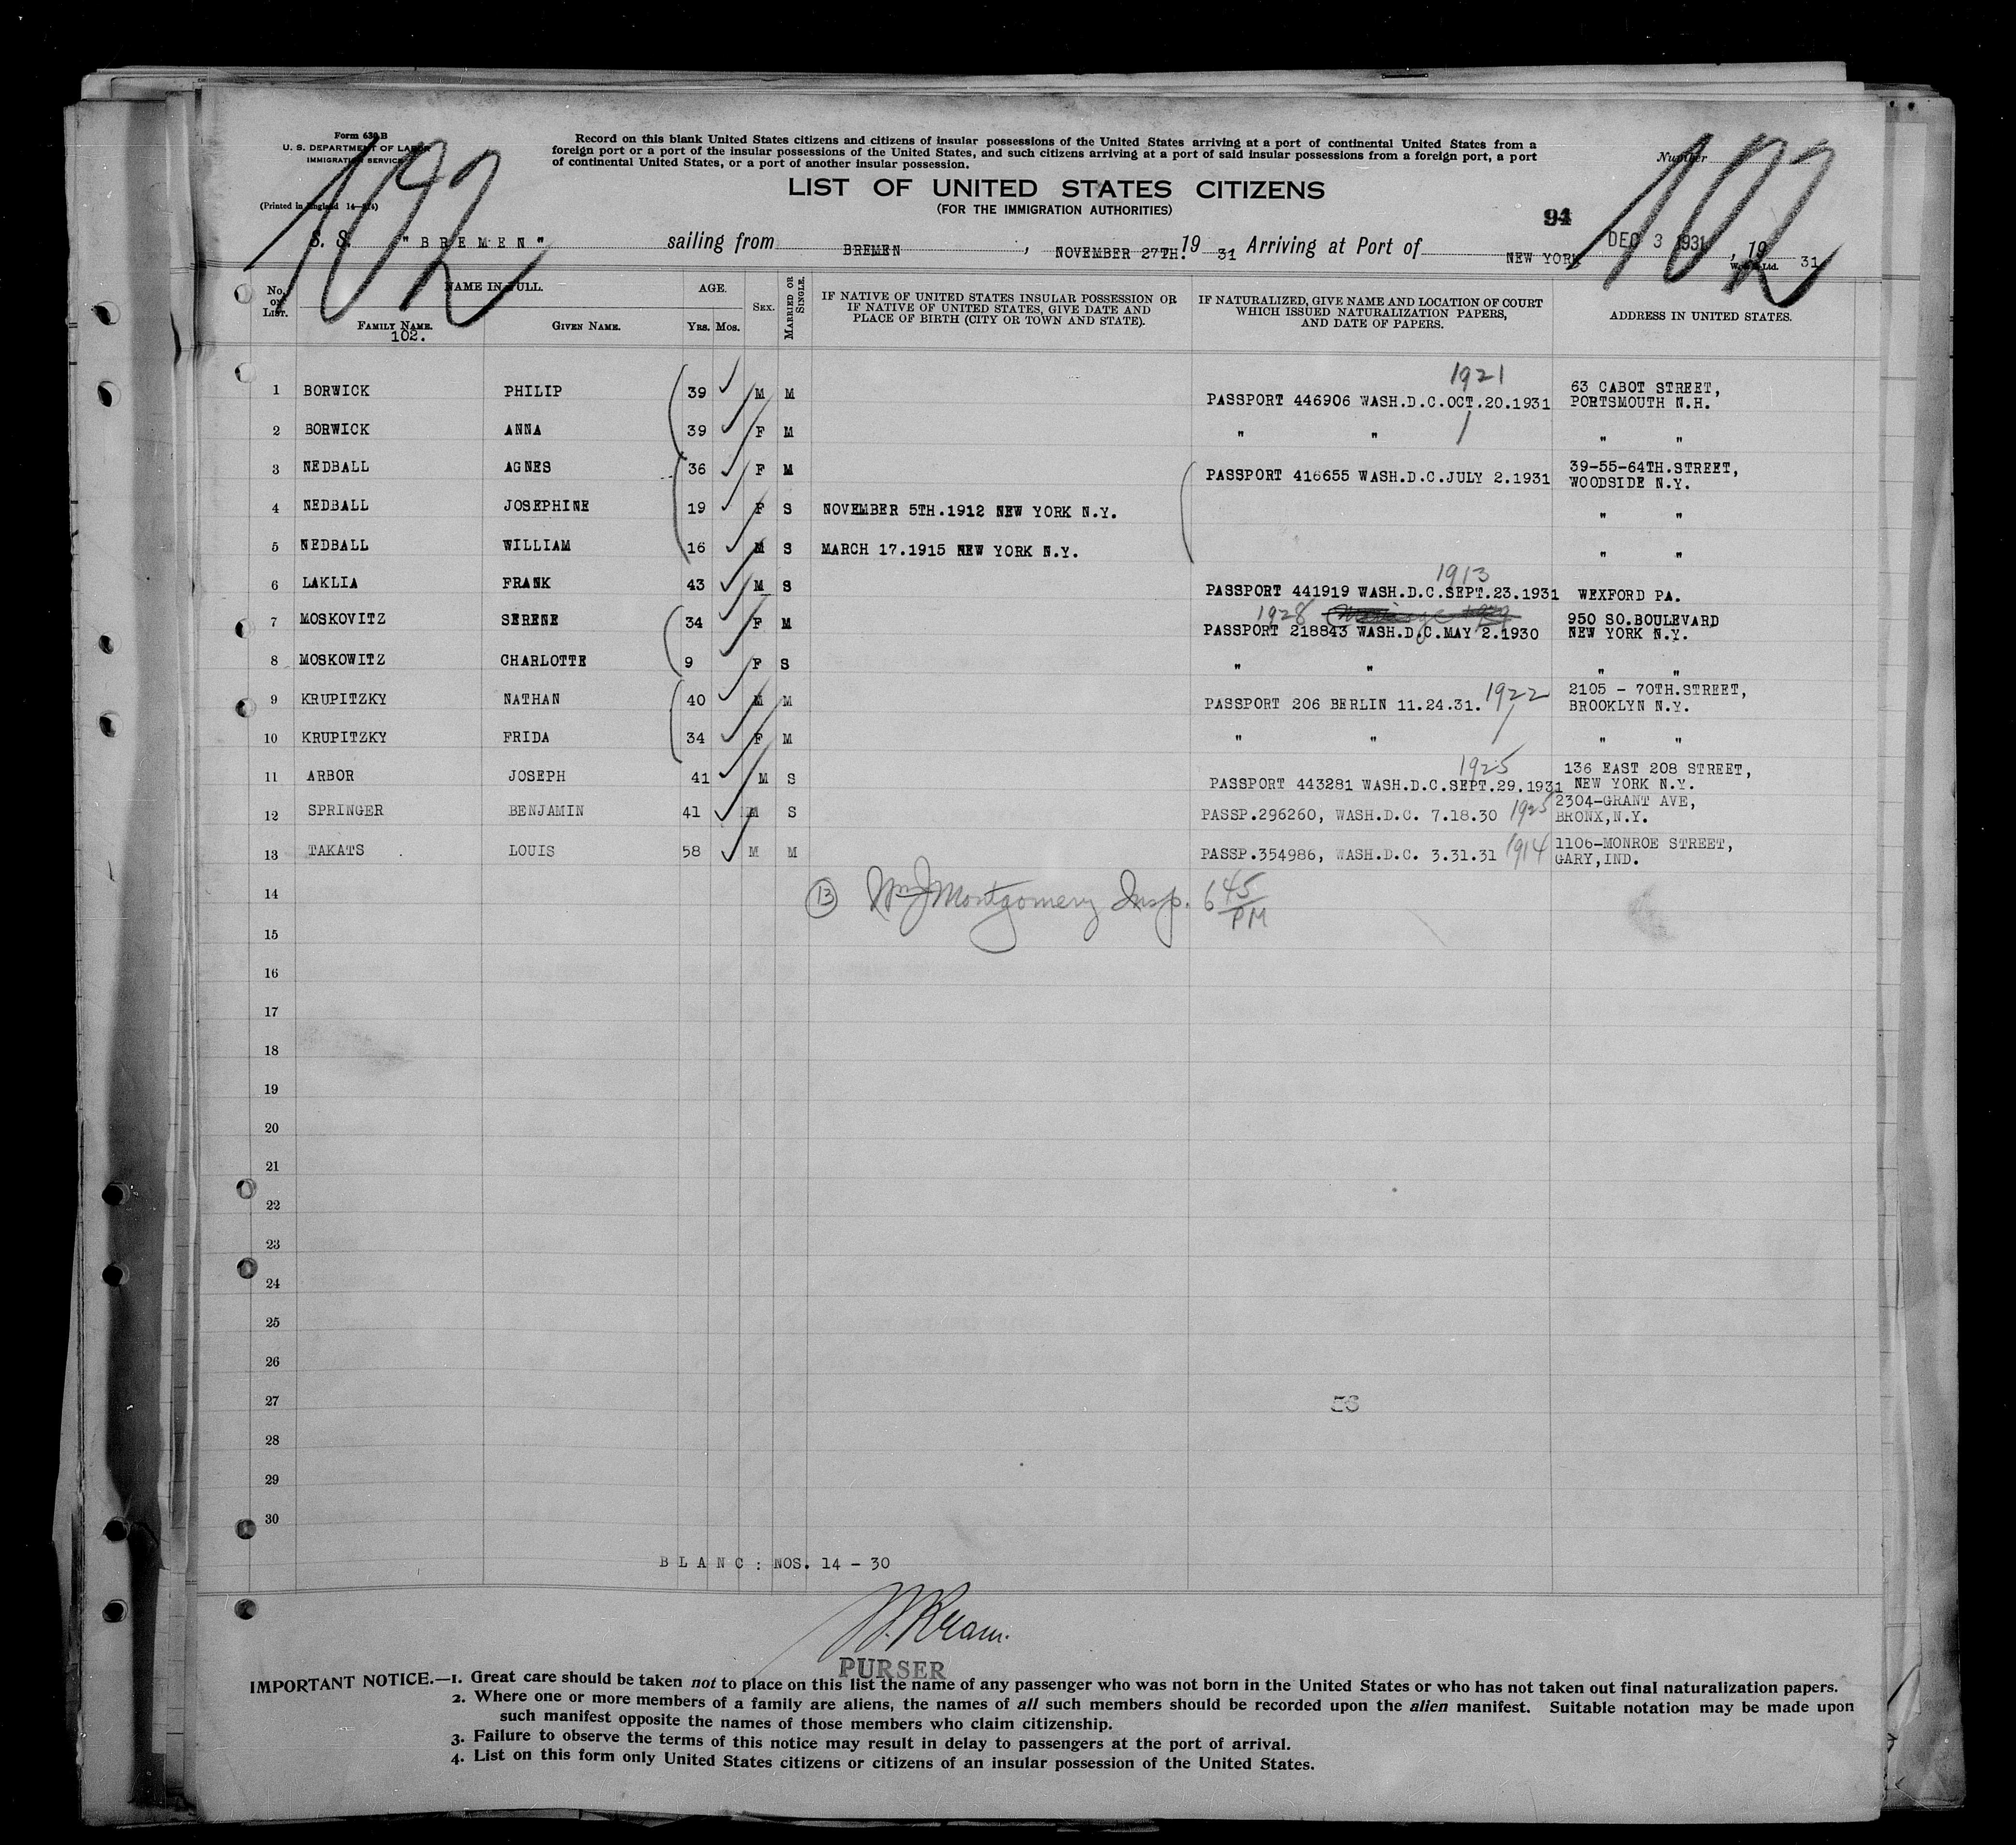 Form 630 B
U. S. DEPARTMENT OF LABOR
IMMIGRATION SERVICE
(Printed in England 14—8-24)
102
Record on this blank United States citizens and citizens of insular possessions of the United States arriving at a port of continental United States from a
foreign port or a port of the insular possessions of the United States, and such citizens arriving at a port of said insular possessions from a foreign port, a port
of continental United States, or a port of another insular possession.
Number
102
LIST OF UNITED STATES CITIZENS
(FOR THE IMMIGRATION AUTHORITIES)
94
S. S. "BREMEN" sailing from BREMEN, NOVEMBER 27TH. 1931 Arriving at Port of NEW YORK DEC 3 1931, 1931
No. on List. NAME IN FULL. AGE. SEX. MARRIED OR SINGLE. IF NATIVE OF UNITED STATES INSULAR POSSESSION OR IF NATIVE OF UNITED STATES, GIVE DATE AND PLACE OF BIRTH (CITY OR TOWN AND STATE). IF NATURALIZED, GIVE NAME AND LOCATION OF COURT WHICH ISSUED NATURALIZATION PAPERS, AND DATE OF PAPERS. ADDRESS IN UNITED STATES.
FAMILY NAME. GIVEN NAME. YRS. MOS.
102.
1921
1 BORWICK PHILIP 39 M M PASSPORT 446906 WASH.D.C.OCT.20.1931 63 CABOT STREET, PORTSMOUTH N.H.
2 BORWICK ANNA 39 F M " " " "
3 NEDBALL AGNES 36 F M PASSPORT 416655 WASH.D.C.JULY 2.1931 39-55-64TH.STREET, WOODSIDE N.Y.
4 NEDBALL JOSEPHINE 19 F S NOVEMBER 5TH.1912 NEW YORK N.Y. " "
5 NEDBALL WILLIAM 16 M S MARCH 17.1915 NEW YORK N.Y. " "
1913
6 LAKLIA FRANK 43 M S PASSPORT 441919 WASH.D.C.SEPT.23.1931 WEXFORD PA.
1928
7 MOSKOVITZ SERENE 34 F M PASSPORT 218843 WASH.D.C.MAY 2.1930 950 SO.BOULEVARD NEW YORK N.Y.
8 MOSKOWITZ CHARLOTTE 9 F S " " " "
9 KRUPITZKY NATHAN 40 M M PASSPORT 206 BERLIN 11.24.31. 1922 2105 - 70TH.STREET, BROOKLYN N.Y.
10 KRUPITZKY FRIDA 34 F M " " " "
1925
11 ARBOR JOSEPH 41 M S PASSPORT 443281 WASH.D.C.SEPT.29.1931 136 EAST 208 STREET, NEW YORK N.Y.
12 SPRINGER BENJAMIN 41 M S PASSP.296260, WASH.D.C. 7.18.30 1925 2304-GRANT AVE, BRONX,N.Y.
13 TAKATS . LOUIS 58 M M PASSP.354986, WASH.D.C. 3.31.31 1914 1106-MONROE STREET, GARY,IND.
14 (13) Wm J Montgomery Insp. 6 45 PM
15
16
17
18
19
20
21
22
23
24
25
26
27
28
29
30
BLANC: NOS. 14 - 30
PURSER
IMPORTANT NOTICE.—1. Great care should be taken not to place on this list the name of any passenger who was not born in the United States or who has not taken out final naturalization papers.
2. Where one or more members of a family are aliens, the names of all such members should be recorded upon the alien manifest. Suitable notation may be made upon
such manifest opposite the names of those members who claim citizenship.
3. Failure to observe the terms of this notice may result in delay to passengers at the port of arrival.
4. List on this form only United States citizens or citizens of an insular possession of the United States.